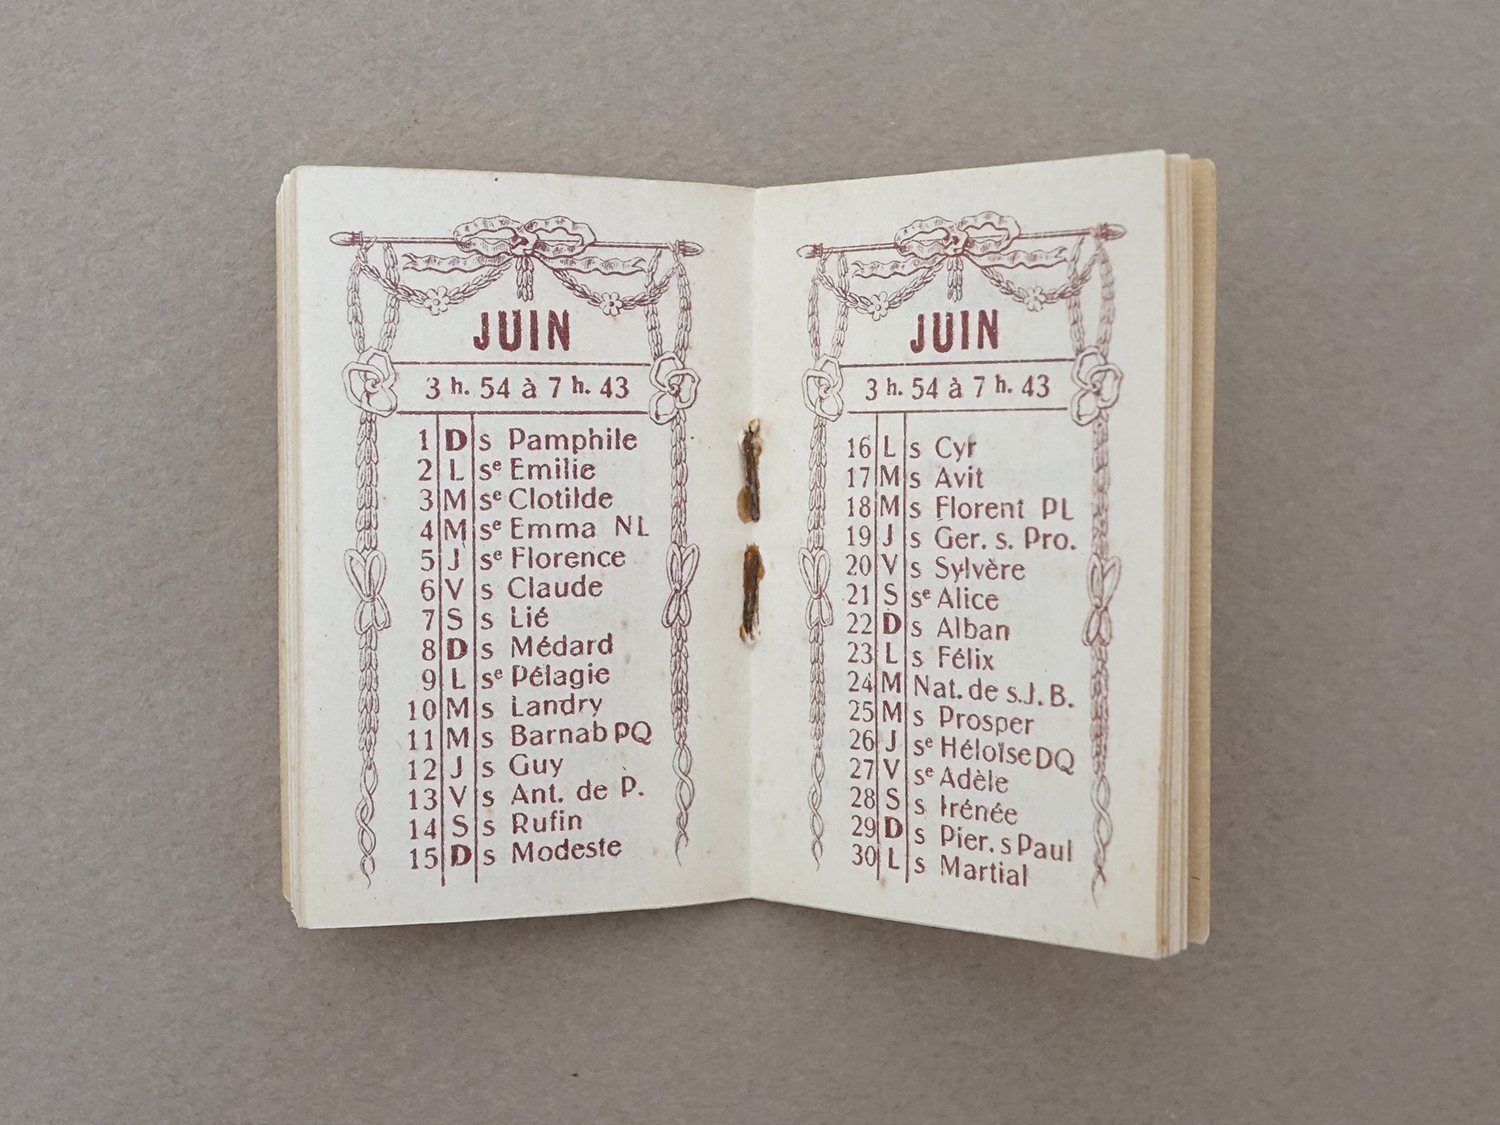 JUIN
3 h. 54 à 7 h. 43
1 D s Pamphile
2 L sᵉ Emilie
3 M sᵉ Clotilde
4 M sᵉ Emma NL
5 J sᵉ Florence
6 V s Claude
7 S s Lié
8 D s Médard
9 L sᵉ Pélagie
10 M s Landry
11 M s Barnab PQ
12 J s Guy
13 V s Ant. de P.
14 S s Rufin
15 D s Modeste
JUIN
3 h. 54 à 7 h. 43
16 L s Cyr
17 M s Avit
18 M s Florent PL
19 J s Ger. s. Pro.
20 V s Sylvère
21 S sᵉ Alice
22 D s Alban
23 L s Félix
24 M Nat. de s. J. B.
25 M s Prosper
26 J sᵉ Héloïse DQ
27 V sᵉ Adèle
28 S s Irénée
29 D s Pier. s Paul
30 L s Martial